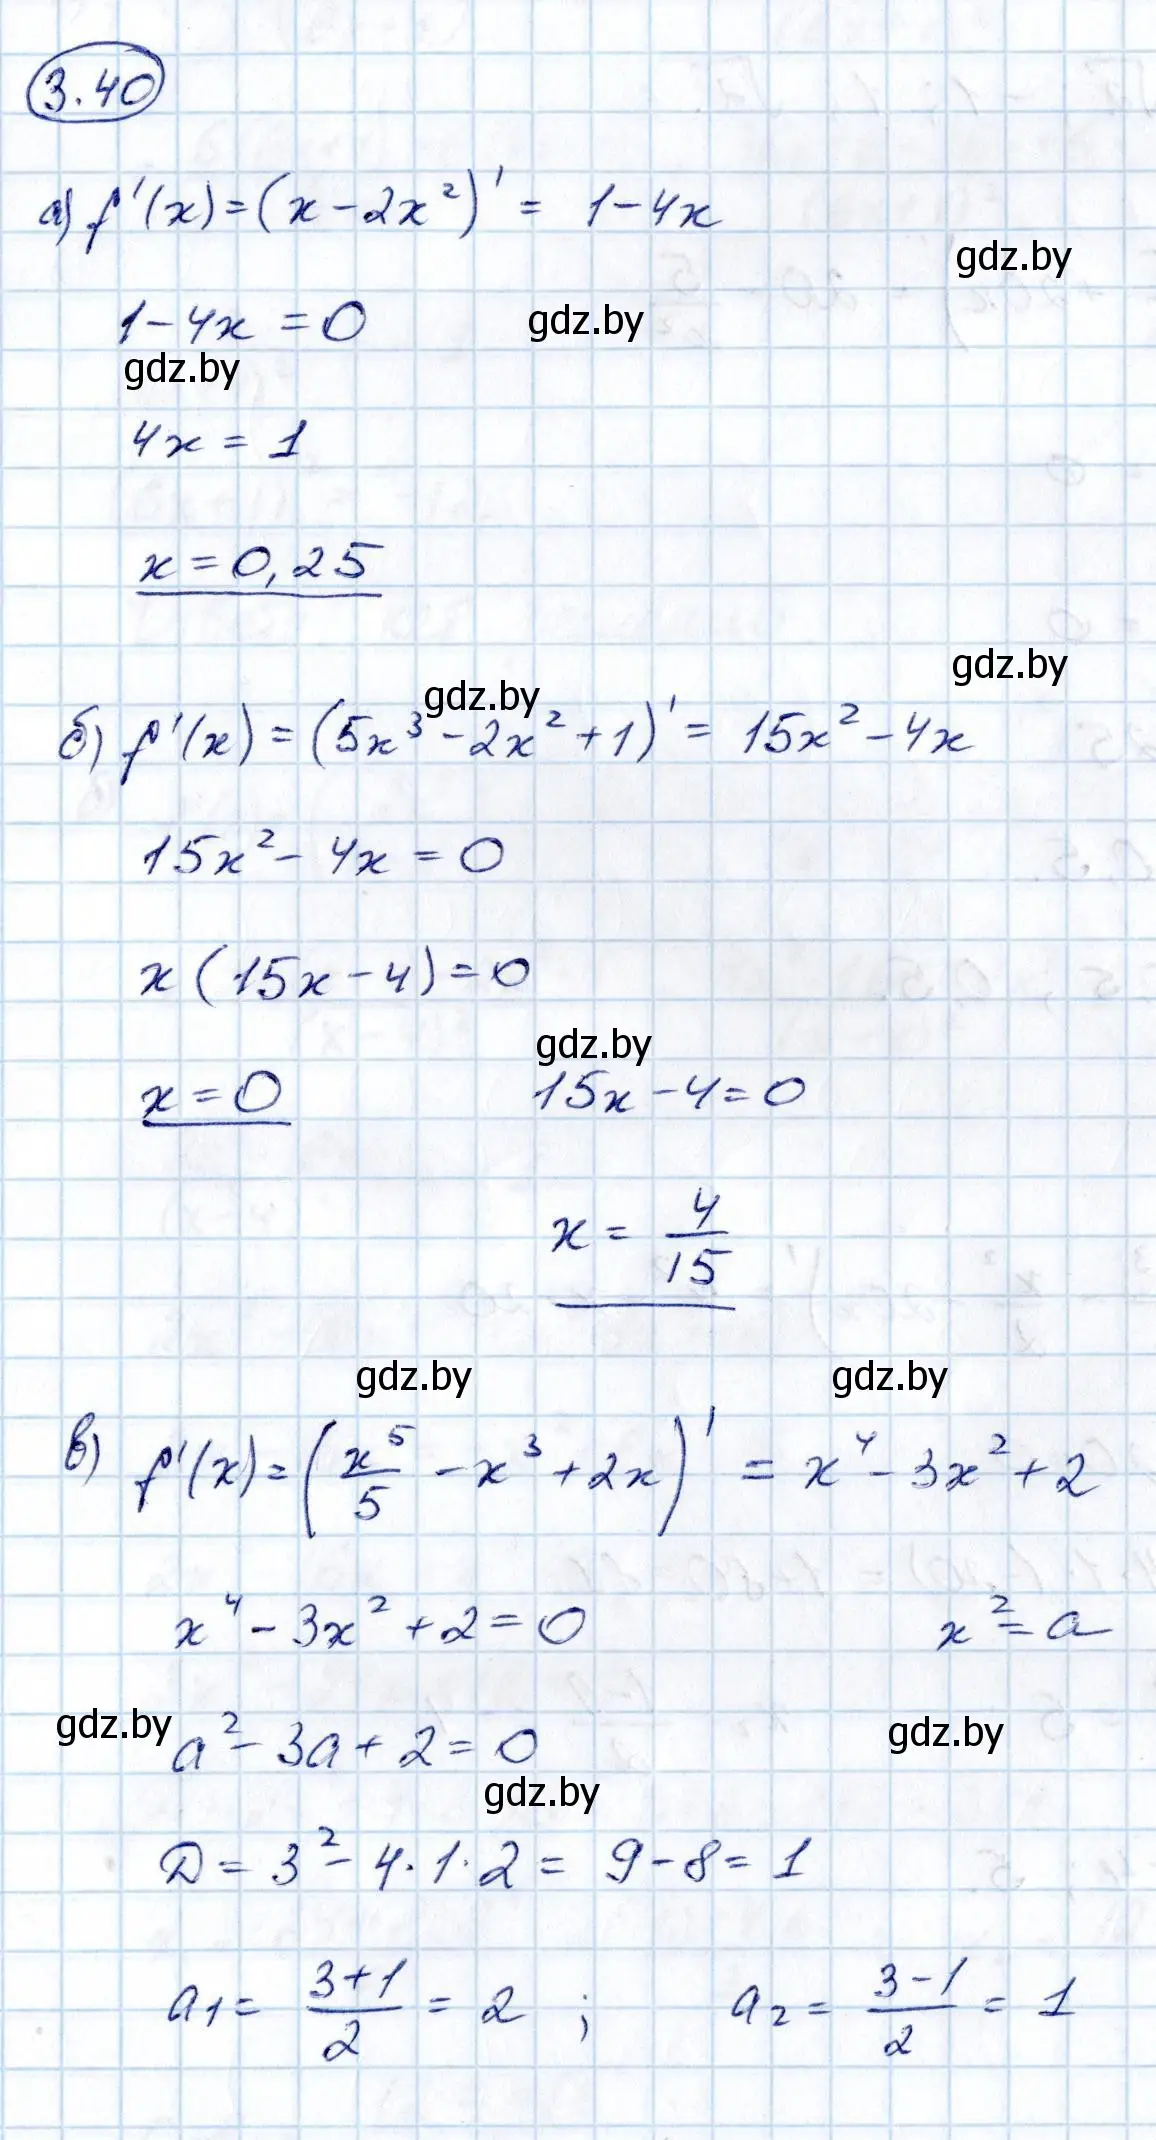 3.40
а) f'(x) = (x - 2x²)' = 1 - 4x
gdz.by
1 - 4x = 0
gdz.by
gdz.by
4x = 1
x = 0,25
gdz.by
gdz.by
б) f'(x) = (5x³ - 2x² + 1)' = 15x² - 4x
15x² - 4x = 0
x (15x - 4) = 0
gdz.by
x = 0 15x - 4 = 0
x = 4/15
gdz.by gdz.by
в) f'(x) = (x⁵/5 - x³ + 2x)' = x⁴ - 3x² + 2
x⁴ - 3x² + 2 = 0 x² = a
gdz.by gdz.by
a² - 3a + 2 = 0
gdz.by
D = 3² - 4·1·2 = 9 - 8 = 1
a₁ = (3+1)/2 = 2 ; a₂ = (3-1)/2 = 1